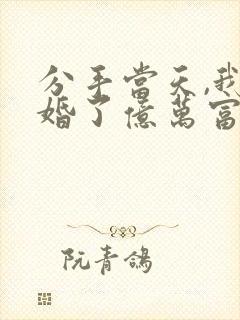 分手當天,我
婚了億萬富
阮青鴿